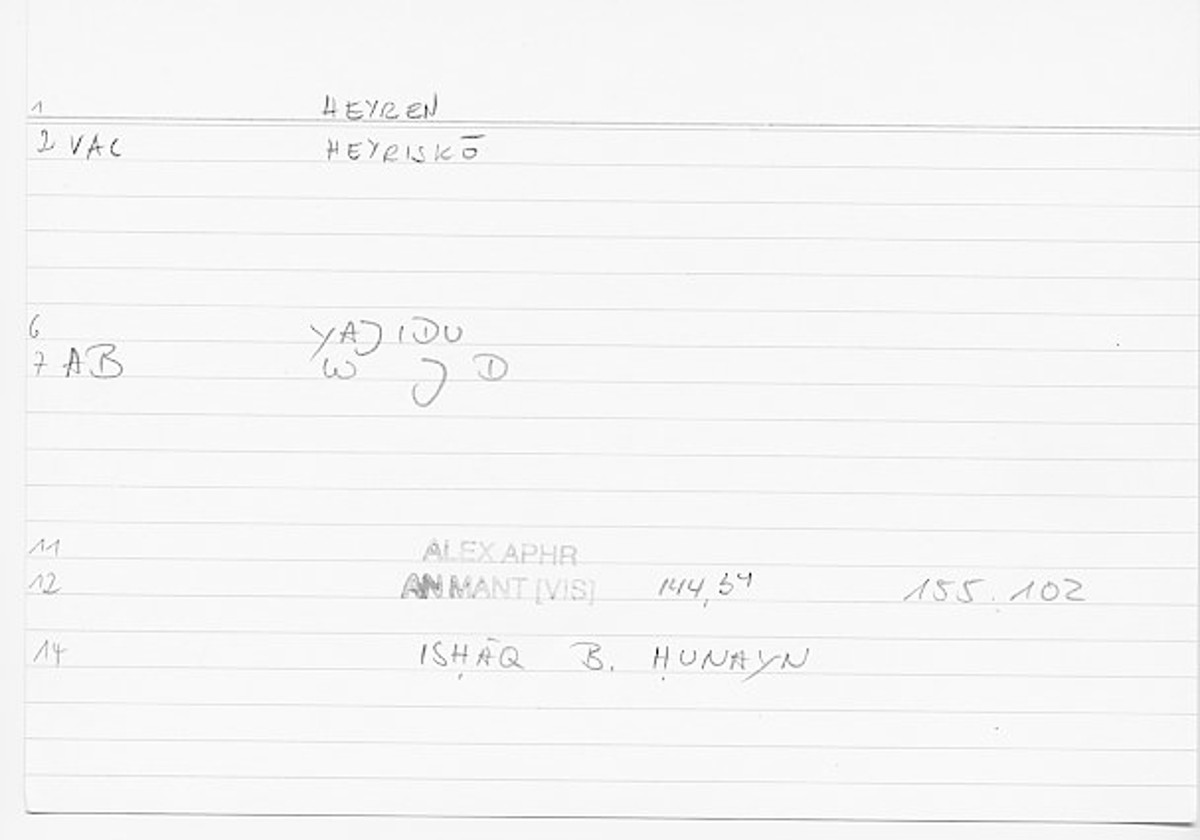 1 HEYREN
2 VAC HEYRISKŌ
6 YAJIDU
7 AB W J D
11 ALEX APHR
12 AN MANT [VIS] 144,34 155.102
14 ISḤĀQ B. ḤUNAYN